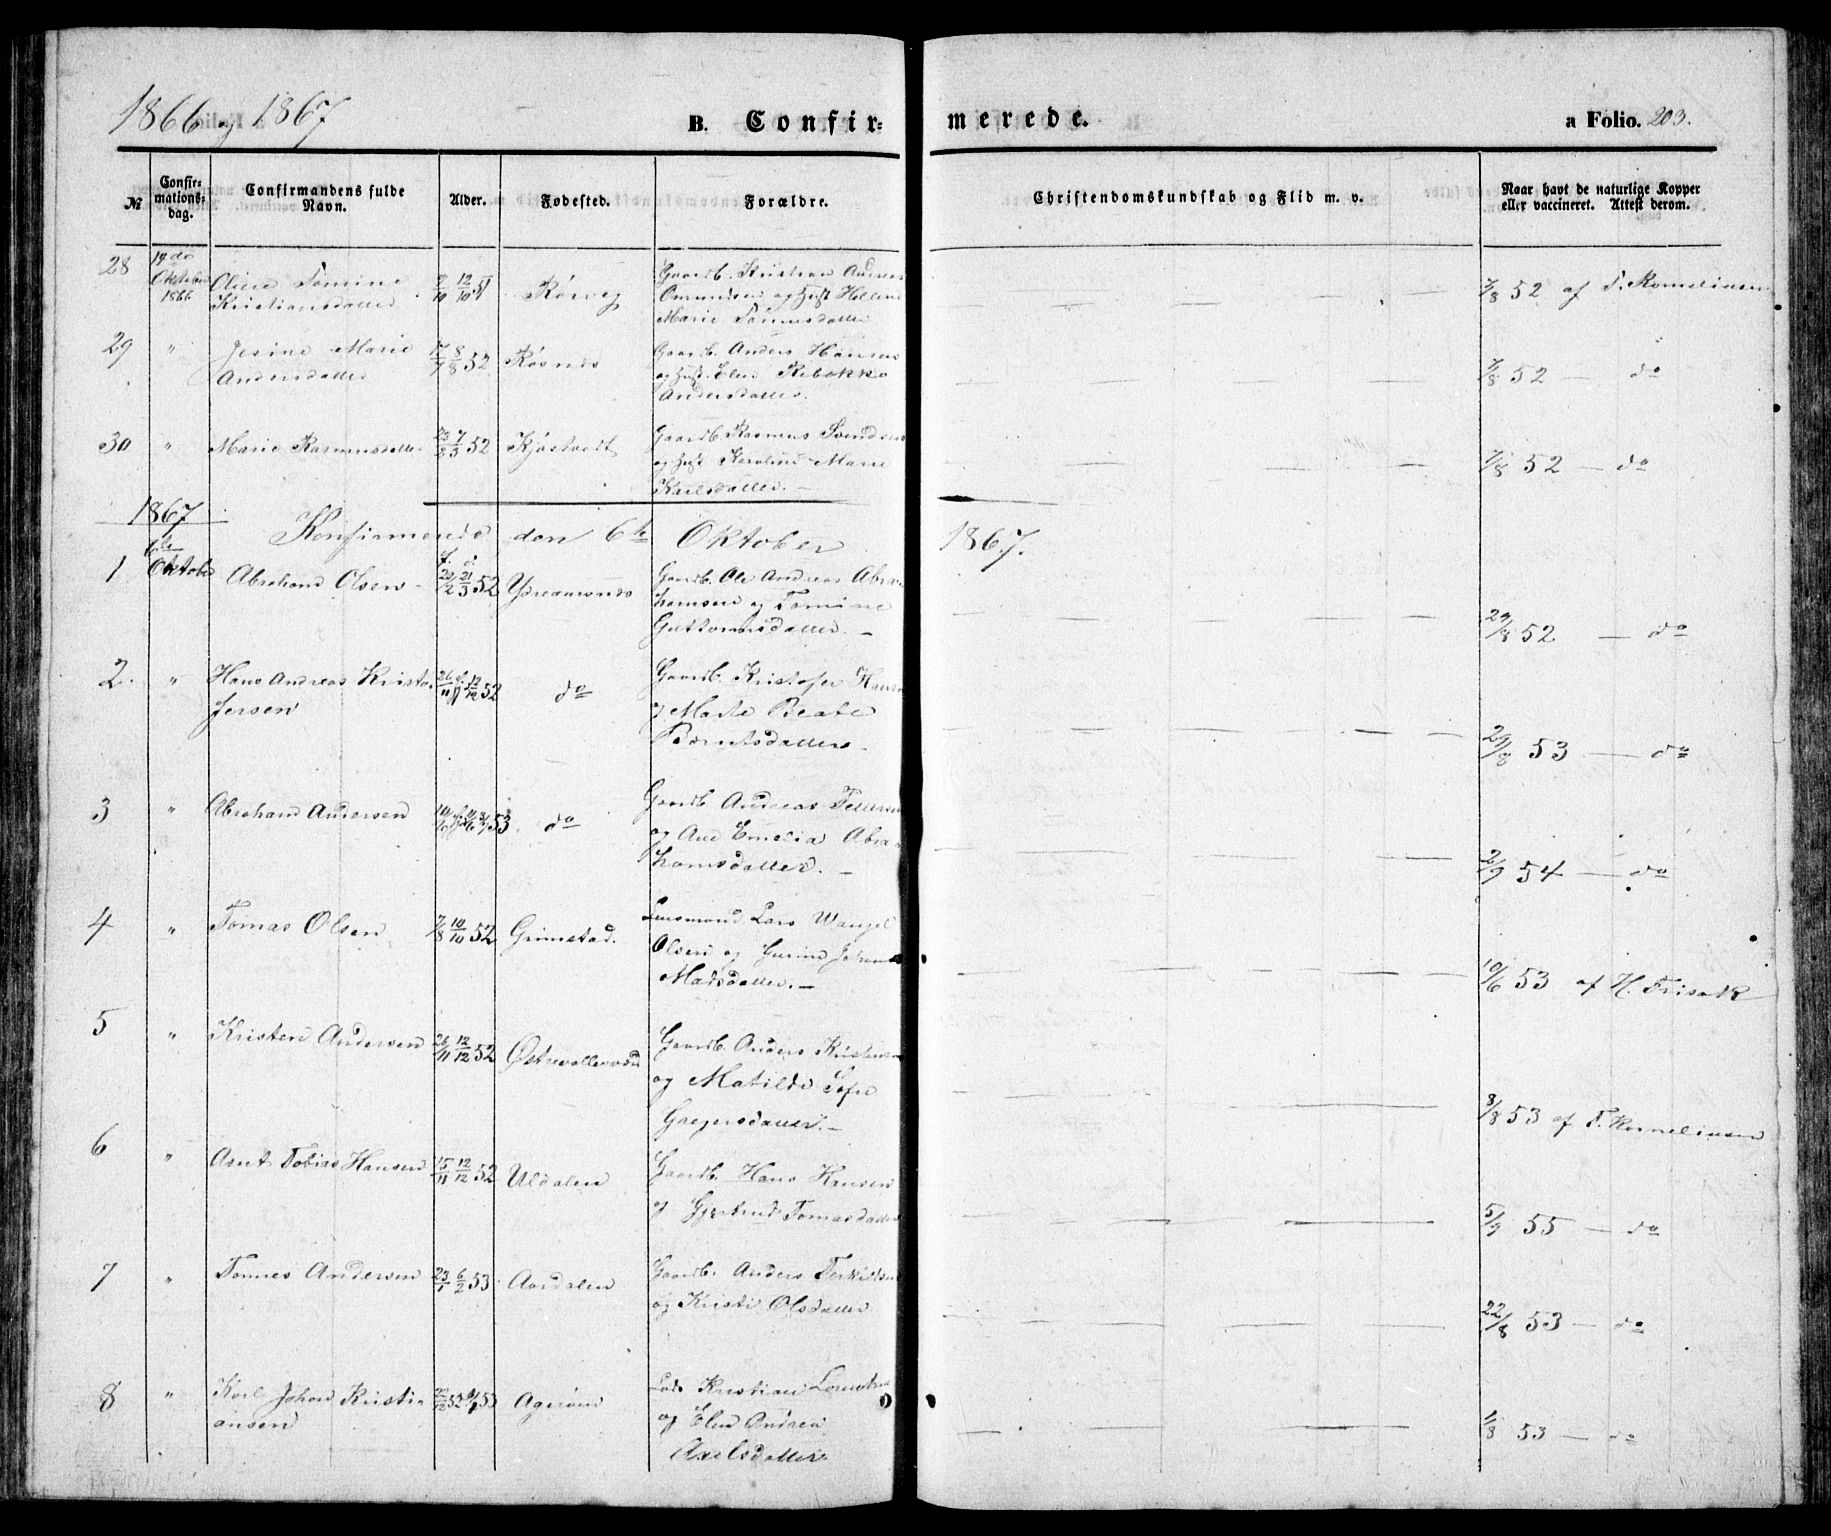 1866 og 1867
B. Confir-
merede.
a Folio. 203.
№
Confir-
mations-
dag.
Confirmandens fulde
Navn.
Alder.
Fødested.
Forældre.
Christendomskundskab og Flid m. v.
Naar havt de naturlige Kopper
eller vaccineret. Attest derom.
28
14de
Oktober
1866
Oline Tomine
Kristiansdatter
Rørvig
Gaardb. Kristian Andreas
Omundsen og Hust Helene
Marie Tønnesdatter
7/8 52 af T. Korneliusen
29 "
Jesine Marie
Andersdatter
17/7 8/8 52
Røsnes
Gaardb. Anders Hansen
og Hust. Elen Rebekka
Andersdatter.
7/8 52 — do
30 "
Marie Rasmusdatter
23/2 7/3 52
Kjøstvedt
Gaardb. Rasmus Svendsen
og Hust Karoline Marie
Karlsdatter. —
7/8 52 — do
1867
Konfirmerede den 6te Oktober 1867.
1
6te
Oktober
Abraham Olsen
22/2 21/3 52
Gaardb. Ole Andreas Abra-
hamsen og Tomine
Guttormsdatter —
29/8 52 — do
2. "
Hans Andreas Kristo-
fersen
26/11 12/12 52
do
Gaardb. Kristofer Hansen
og Marte Beate
Berntsdatter.
29/8 53 — do
3 "
Abraham Andersen
53
do
Gaardb. Andreas
og Ane Emelia Abra-
hamsdatter. —
2/9 54 — do
4 "
Tomas Olsen
7/8 10/10 52
Grimstad.
Lensmand Lars Wangel
Olsen og Gurine
Madsdatter. —
10/6 53 af H. Frisak
5 "
Kristen Andersen
26/11 12/12 52
Østrevallesverd
Gaardb. Anders Kristensen
og Matilde Sofie
Gregersdatter. —
8/8 53 af T. Korneliusen
6 "
Arnt Tobias Hansen
15/11 12/12 52
Uldalen
Gaardb. Hans Hansen
og Gjertrud Tomasdatter
5/9 55 — do
7 "
Tønnes Andersen
23/1 6/2 53
Aardalen
Gaardb. Anders Terkildsen
og Kristi Olsdatter
22/8 53 — do
8 "
Karl Johan Kristi-
ansen
52 53
Agerøen
Lods Kristian
og Elen Andrea
Axelsdatter
1/8 53 — do